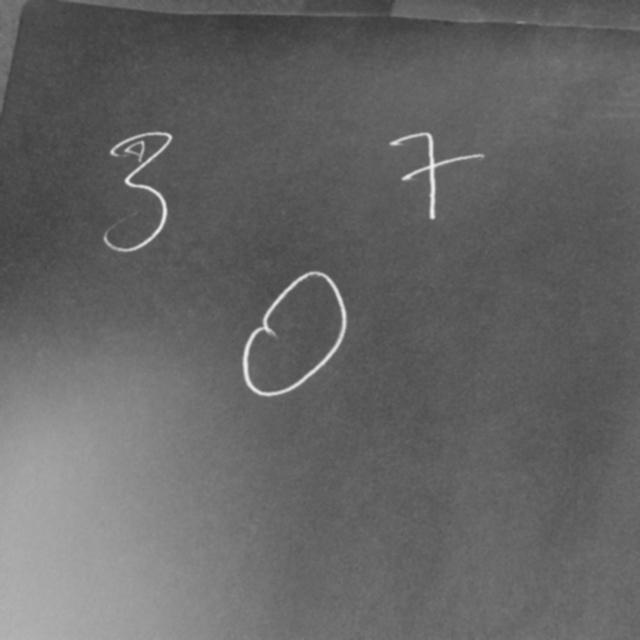 3 7
0